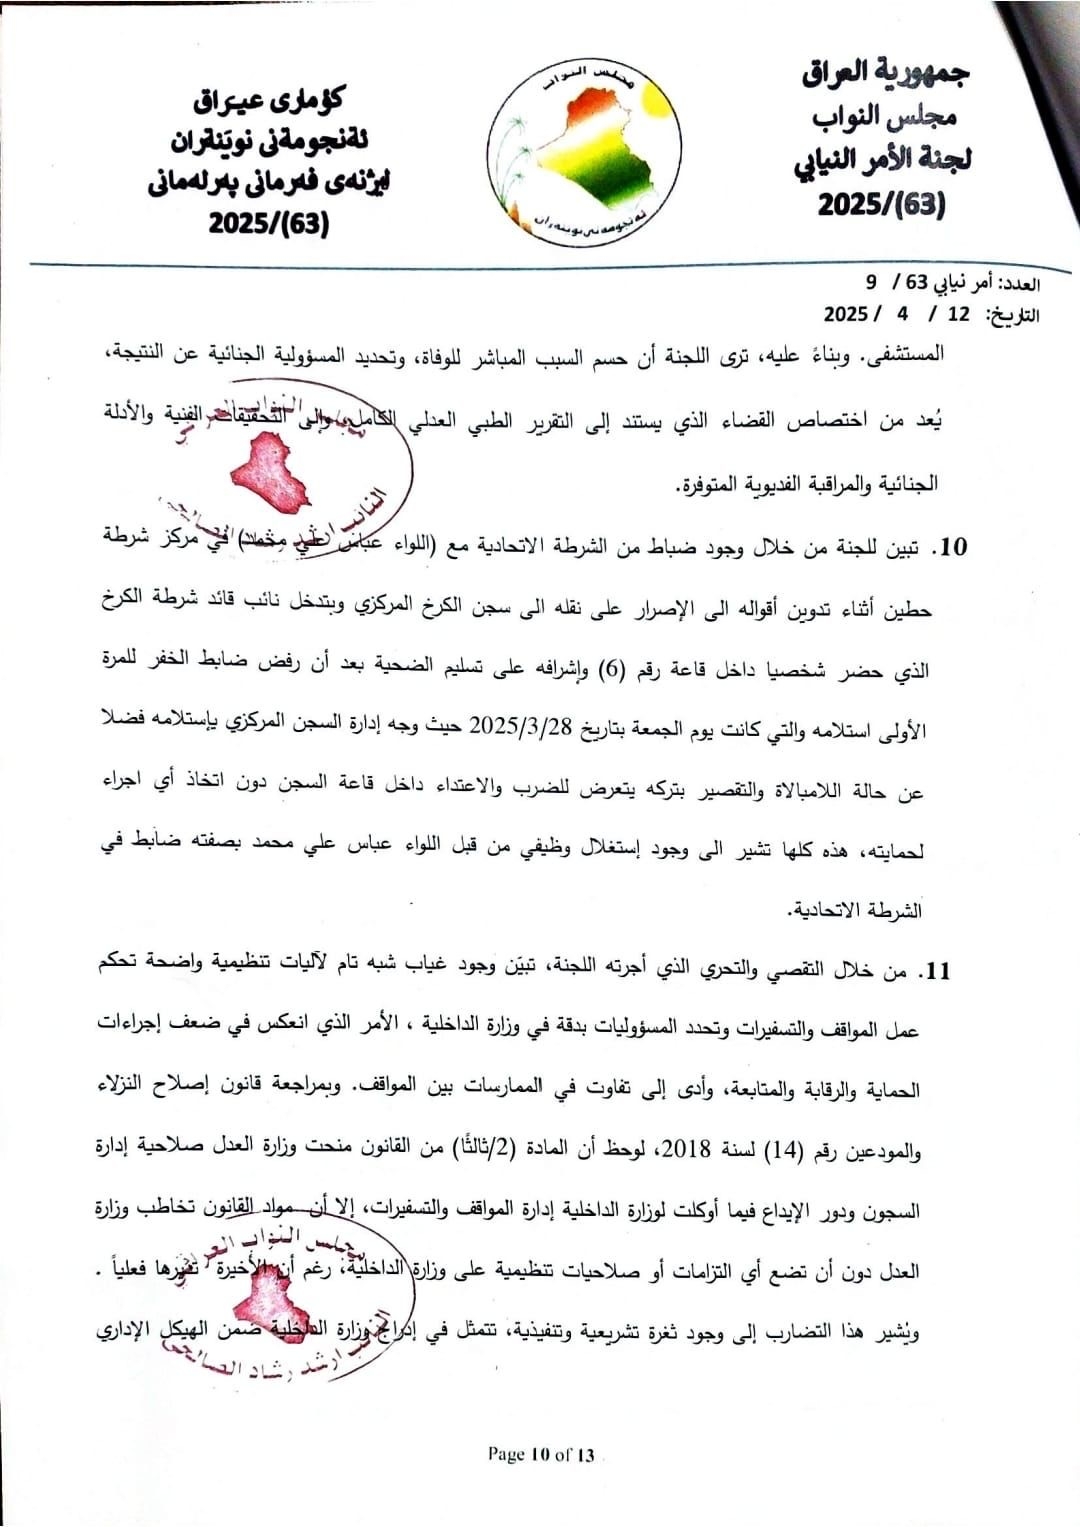 جمهورية العراق
مجلس النواب
لجنة الأمر النيابي
2025/(63)
كۆماری عیراق
ئەنجومەنی نوێنەران
لیژنەی فەرمانی پەرلەمانی
2025/(63)
مجلس النواب
ئەنجومەنی نوێنەران
العدد: أمر نيابي 63 / 9
التاريخ: 12 / 4 / 2025
المستشفى. وبناءً عليه، ترى اللجنة أن حسم السبب المباشر للوفاة، وتحديد المسؤولية الجنائية عن النتيجة،
يُعد من اختصاص القضاء الذي يستند إلى التقرير الطبي العدلي الكامل، وإلى التحقيقات الفنية والأدلة
الجنائية والمراقبة الفديوية المتوفرة.
10. تبين للجنة من خلال وجود ضباط من الشرطة الاتحادية مع (اللواء عباس علي محمد) في مركز شرطة
حطين أثناء تدوين أقواله الى الإصرار على نقله الى سجن الكرخ المركزي وبتدخل نائب قائد شرطة الكرخ
الذي حضر شخصيا داخل قاعة رقم (6) وإشرافه على تسليم الضحية بعد أن رفض ضابط الخفر للمرة
الأولى استلامه والتي كانت يوم الجمعة بتاريخ 2025/3/28 حيث وجه إدارة السجن المركزي بإستلامه فضلا
عن حالة اللامبالاة والتقصير بتركه يتعرض للضرب والاعتداء داخل قاعة السجن دون اتخاذ أي اجراء
لحمايته، هذه كلها تشير الى وجود إستغلال وظيفي من قبل اللواء عباس علي محمد بصفته ضابط في
الشرطة الاتحادية.
11. من خلال التقصي والتحري الذي أجرته اللجنة، تبيّن وجود غياب شبه تام لآليات تنظيمية واضحة تحكم
عمل المواقف والتسفيرات وتحدد المسؤوليات بدقة في وزارة الداخلية ، الأمر الذي انعكس في ضعف إجراءات
الحماية والرقابة والمتابعة، وأدى إلى تفاوت في الممارسات بين المواقف. وبمراجعة قانون إصلاح النزلاء
والمودعين رقم (14) لسنة 2018، لوحظ أن المادة (2/ثالثًا) من القانون منحت وزارة العدل صلاحية إدارة
السجون ودور الإيداع فيما أوكلت لوزارة الداخلية إدارة المواقف والتسفيرات، إلا أن مواد القانون تخاطب وزارة
العدل دون أن تضع أي التزامات أو صلاحيات تنظيمية على وزارة الداخلية، رغم أن الأخيرة تديرها فعلياً .
ويُشير هذا التضارب إلى وجود ثغرة تشريعية وتنفيذية، تتمثل في إدراج وزارة الداخلية ضمن الهيكل الإداري
مجلس النواب العراقي
النائب ارشد رشاد الصالحي
Page 10 of 13